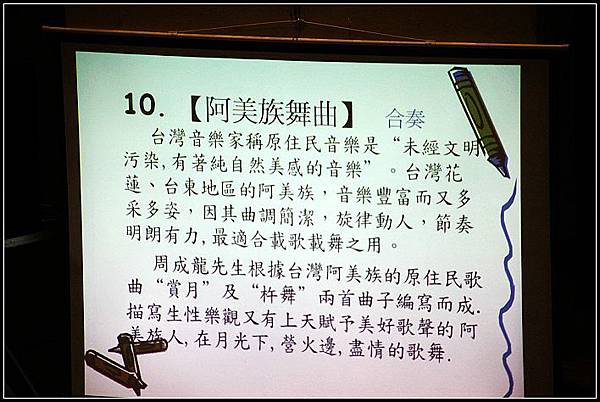 10. 【阿美族舞曲】 合奏
台灣音樂家稱原住民音樂是“未經文明
污染,有著純自然美感的音樂”。台灣花
蓮、台東地區的阿美族，音樂豐富而又多
采多姿，因其曲調簡潔，旋律動人，節奏
明朗有力,最適合載歌載舞之用。
周成龍先生根據台灣阿美族的原住民歌
曲“賞月”及“杵舞”兩首曲子編寫而成.
描寫生性樂觀又有上天賦予美好歌聲的阿
美族人,在月光下,營火邊,盡情的歌舞.